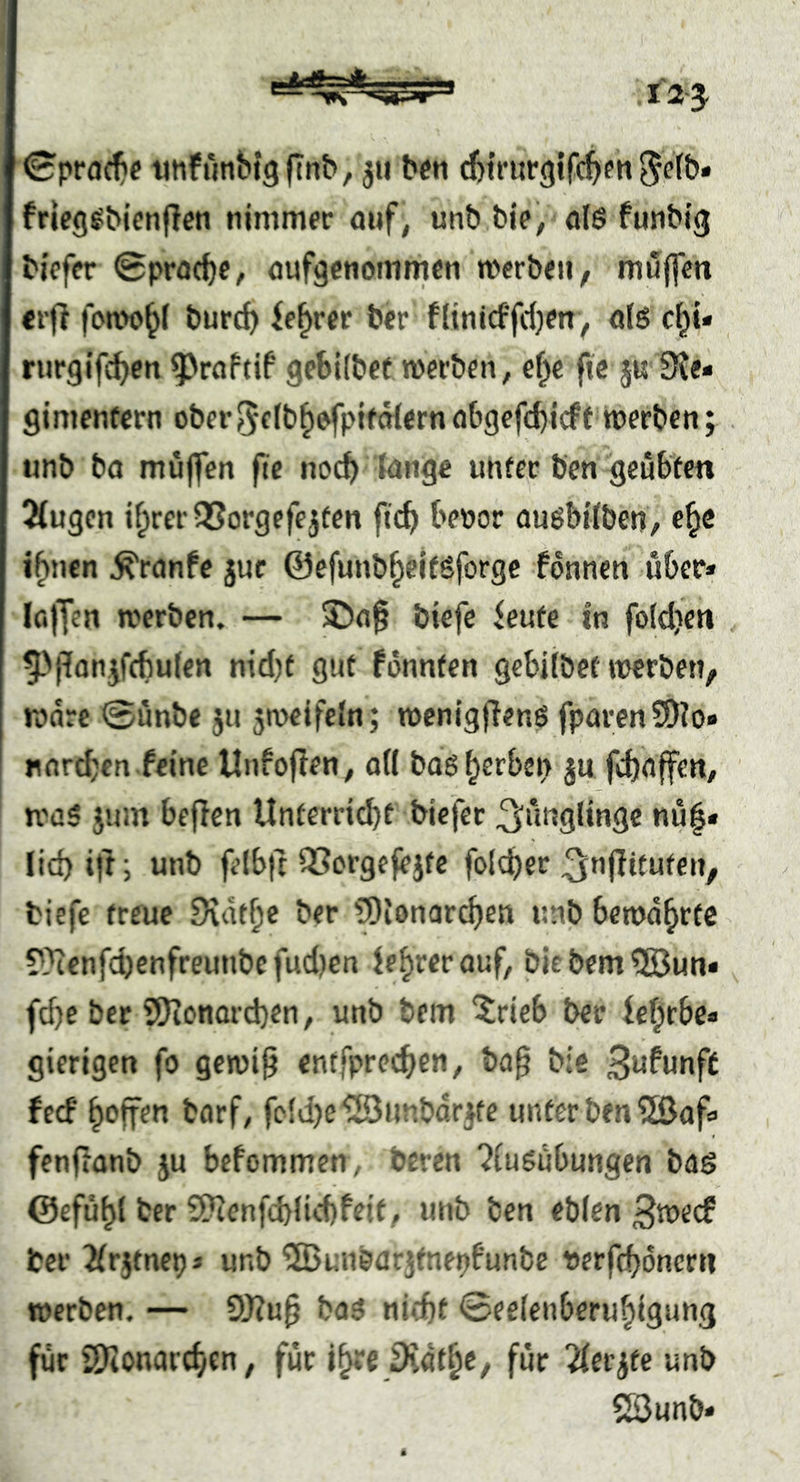 123
Sprache unkündig sind, zu den chirurgischen Feld-
kriegsdiensten nimmer auf, und die, als kündig
dieser Sprache, aufgenommen werden, müssen
erst sowohl durch Lehrer der klinickschen, als chi-
rurgischen Praktik gebildet werden, ehe sie zu Re-
gimentern oder Feldhospitälern abgeschickt werden;
und da müssen sie noch lange unter den geübten
Augen ihrer Vorgesezten sich bevor ausbilden, ehe
ihnen Kranke zur Gesundheitssorge können über-
lassen werden. — Daß diese Leute in solchen
Pflanzschulen nicht gut könnten gebildet werden,
wäre Sünde zu zweifeln; wenigstens sparen Mo-
narchen keine Unkosten, all das herbey zu schaffen,
was zum besten Unterricht dieser Jünglinge nüß-
lich ist; und selbst Vorgesezte solcher Instituten,
diese treue Räthe der Monarchen und bewährte
Menschenfreunde suchen Lehrer auf, die dem Wun-
sche der Monarchen, und dem Trieb der lehrbe-
gierigen so gewiß entsprechen, daß die Zukunft
keck hoffen darf, solche Wundärzte unter den Waf-
fenstand zu bekommen, deren Ausübungen das
Gefühl der Menschlichkeit, und den edlen Zweck
der Arztney- und Wundarztneykunde verschönern
werden. — Muß das nicht Seelenberuhigung
für Monarchen, für ihre Räthe, für Aerzte und
Wund-